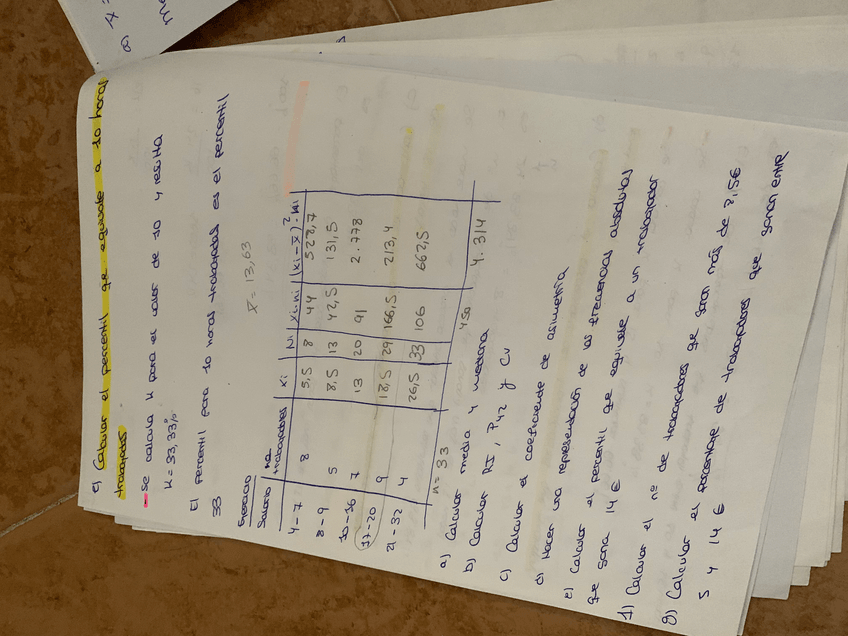 e) Calcular el percentil que equivale a 10 horas
trabajadas
- se calcula K para el valor de 10 y resulta
K = 33,33%
El percentil para 10 horas trabajadas es el percentil
33
x̄ = 13,63
Ejercicio
Salario | nº trabajadores | xi | Ni | xi·ni | (xi-x̄)²·ni
4-7 | 8 | 5,5 | 8 | 44 | 528,7
8-9 | 5 | 8,5 | 13 | 42,5 | 131,5
10-16 | 7 | 13 | 20 | 91 | 2.778
17-20 | 9 | 18,5 | 29 | 166,5 | 213,4
21-32 | 4 | 26,5 | 33 | 106 | 662,5
n = 33 | 450 | 4.314
a) Calcular media y mediana
b) Calcular RI, P42 y CV
c) Calcular el coeficiente de asimetría
d) Hacer una representación de las frecuencias absolutas
e) Calcular el percentil que equivale a un trabajador
que gana 14 €
f) Calcular el nº de trabajadores que ganan más de 8,5€
g) Calcular el porcentaje de trabajadores que ganan entre
5 y 14 €